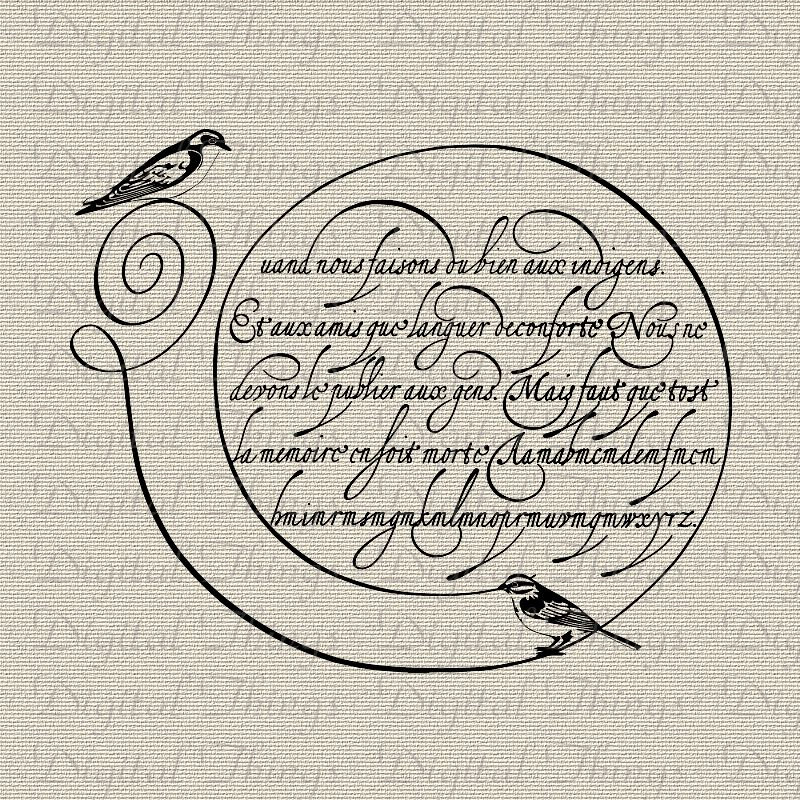 uand nous faisons du bien aux indigens.
Et aux amis que languer deconforte Nous ne
devons le publier aux gens. Mais faut que tost
la memoire en soit morte Aamabmcmdemfmcm
hmimrmsmgmkmlmnoprmuvmqmwxyrz.
Digital Things